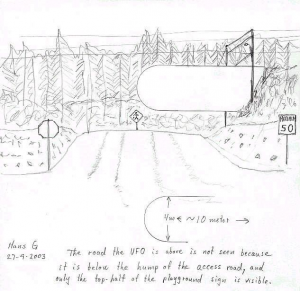 MAXIMUM
50
4m
~10 meter →
Hans G
27-9-2003
The road the UFO is above is not seen because
it is below the hump of the access road, and
only the top-half of the playground sign is visible.